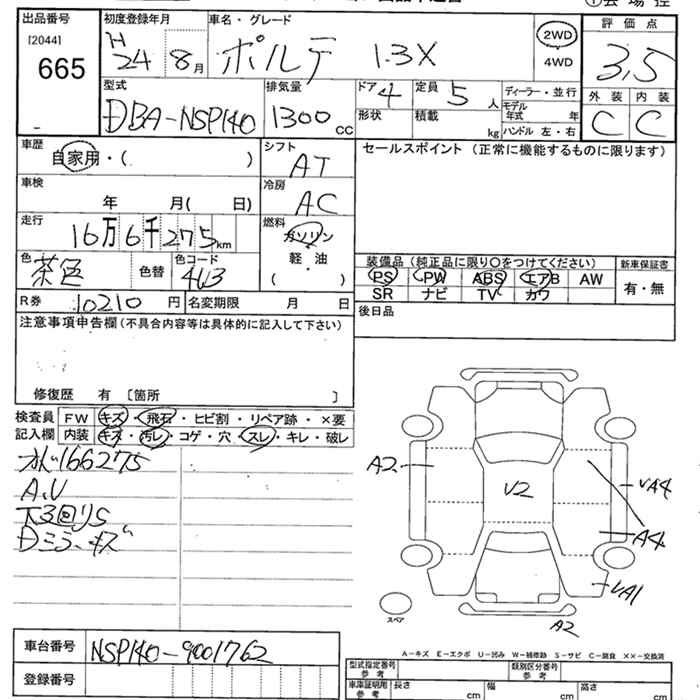 出品番号 初度登録年月 車名・グレード ①会場控
[2044] H24 8月 ポルテ 1.3X 2WD 評価点
665 4WD 3.5
型式 排気量 ドア4 定員5人 ディーラー・並行 外装 内装
DBA-NSP140 1300CC 形状 積載 kg モデル年式 年 C C
ハンドル 左・右
車歴 シフト セールスポイント (正常に機能するものに限ります)
自家用・( ) AT
車検 冷房
年 月( 日) AC
走行 燃料
16万6千275km ガソリン
軽・油
( )
色 茶色 色替 色コード 4U3
装備品 (純正品に限り○をつけてください) 新車保証書
PS PW ABS エアB AW 有・無
SR ナビ TV カワ
R券 10210円 名変期限 月 日 後日品
注意事項申告欄(不具合内容等は具体的に記入して下さい)
修復歴 有 〔箇所 〕
検査員 FW キズ・飛石・ヒビ割・リペア跡・×要
記入欄 内装 キズ・汚レ・コゲ・穴・スレ・キレ・破レ
166275
A.U
下3回りS
Dミラーキズ
A2 U2 UA4
A4
UA1
A2
スペア
A-キズ E-エクボ U-凹み W-補修跡 S-サビ C-腐食 XX-交換済
車台番号 NSP140-9001762
登録番号
型式指定番号 参考 類別区分番号 参考
車庫証明用 参考 長さ cm 幅 cm 高さ cm